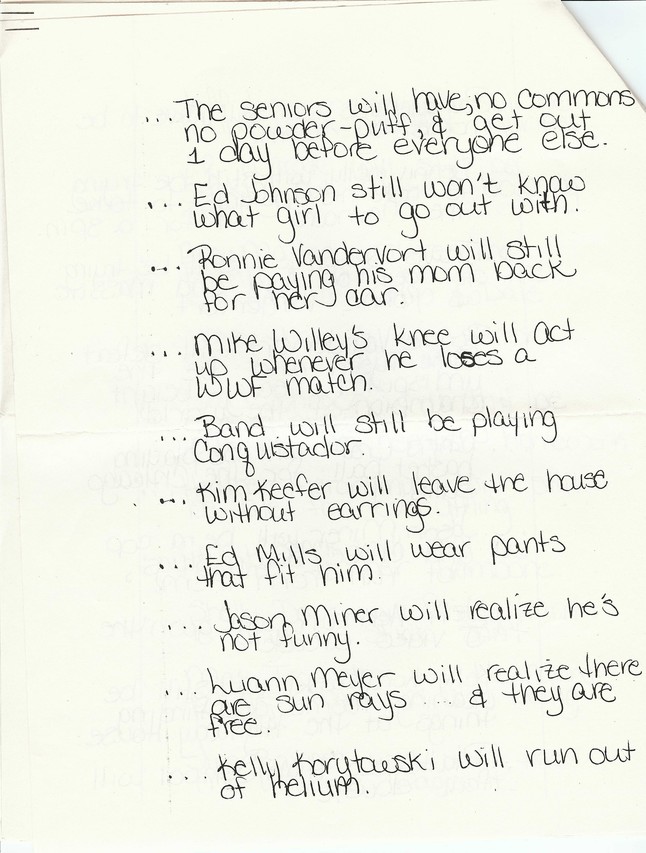 ... The seniors will have, no commons
no powder-puff, & get out
1 day before everyone else.
... Ed Johnson still won't know
what girl to go out with.
... Ronnie Vandervort will still
be paying his mom back
for her car.
... Mike Willey's knee will act
up whenever he loses a
WWF match.
... Band will still be playing
Conquistador.
... Kim Keefer will leave the house
without earrings.
... Ed Mills will wear pants
that fit him.
... Jason Miner will realize he's
not funny.
... Luann Meyer will realize there
are sun rays ... & they are
free.
... Kelly Korytowski will run out
of helium.